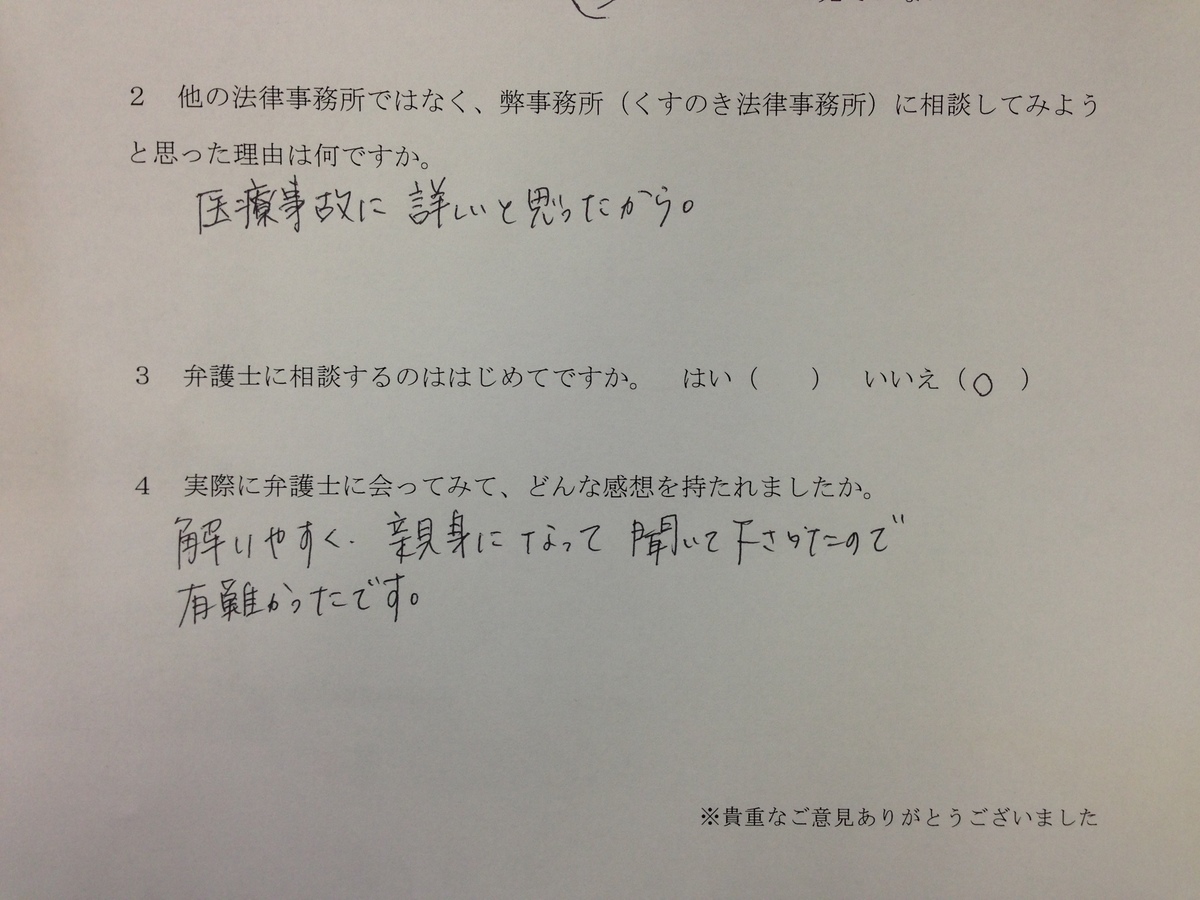 2 他の法律事務所ではなく、弊事務所（くすのき法律事務所）に相談してみよう
と思った理由は何ですか。
医療事故に詳しいと思ったから。
3 弁護士に相談するのははじめてですか。 はい（ ） いいえ（○ ）
4 実際に弁護士に会ってみて、どんな感想を持たれましたか。
解りやすく、親身になって聞いて下さったので
有難かったです。
※貴重なご意見ありがとうございました